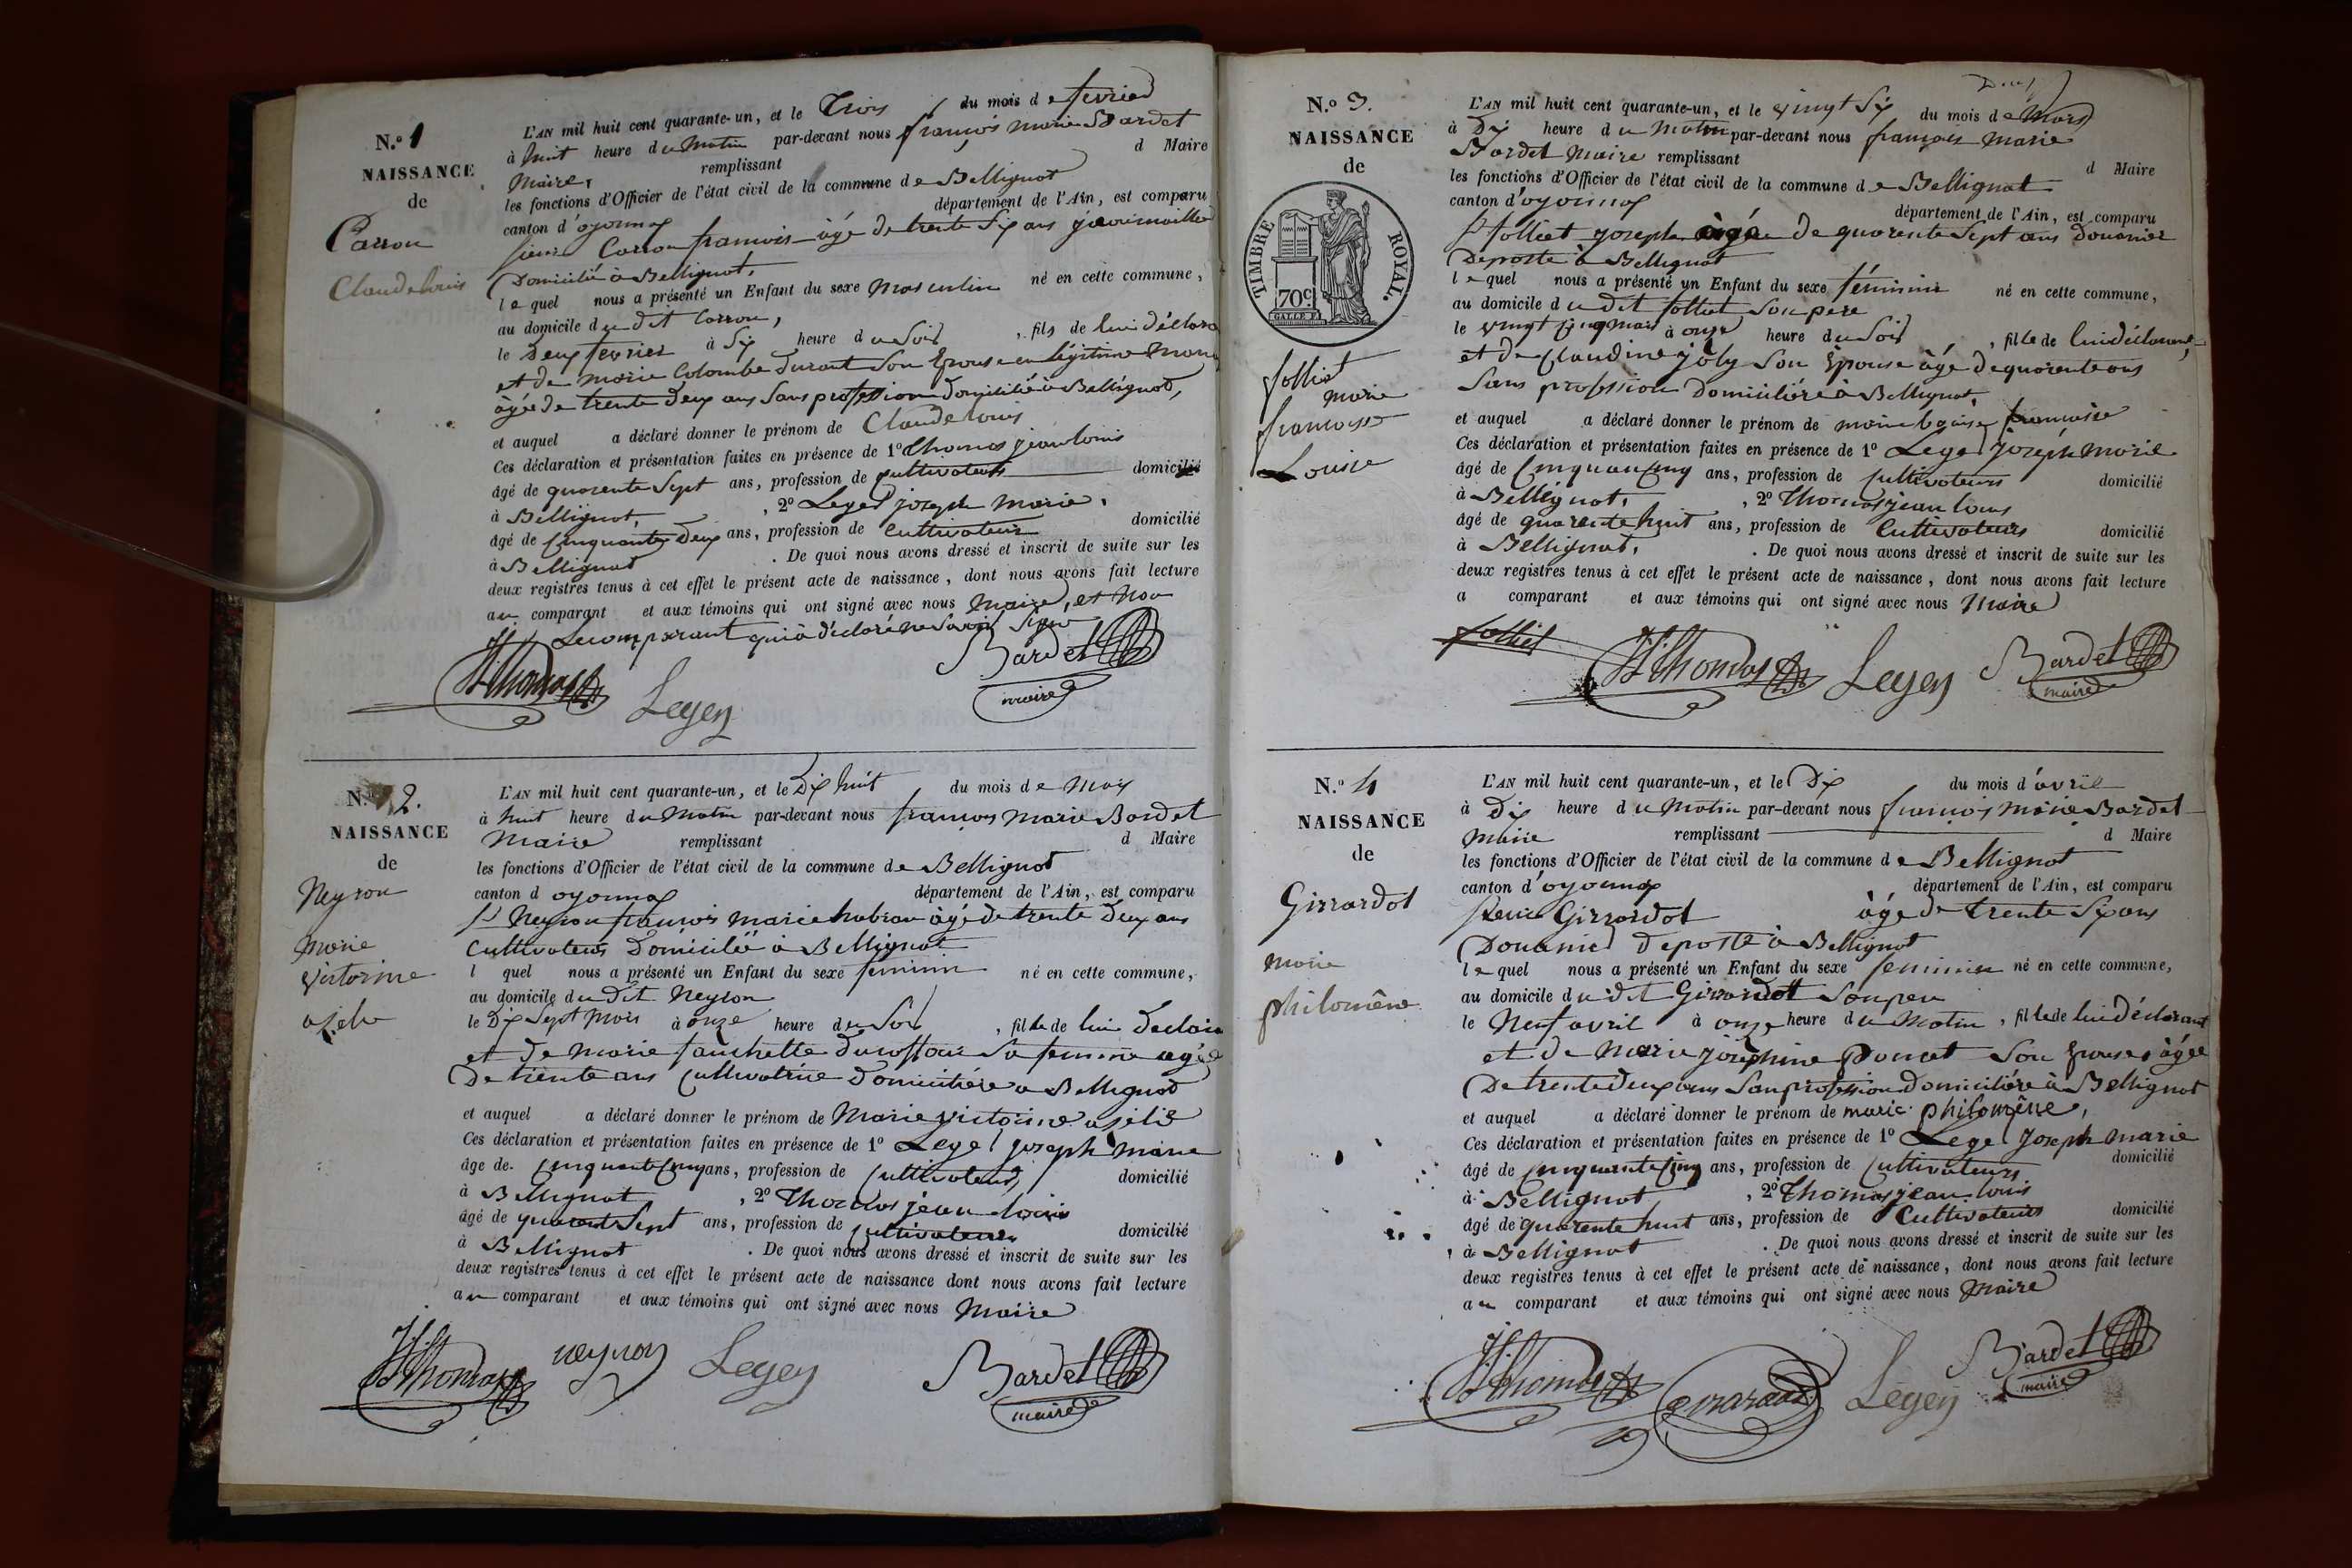 N.º 1
NAISSANCE
de
Carron
Claude louis
L'AN mil huit cent quarante-un, et le Trois du mois de fevrier
à huit heure du Matin par-devant nous françois Marie Bardet
Maire, remplissant d Maire
les fonctions d'Officier de l'état civil de la commune de Bellignat
canton d'oyonnax département de l'Ain, est comparu
sieur Carron francois âgé de trente Six ans
Domicilié à Bellignat,
lequel nous a présenté un Enfant du sexe Masculin né en cette commune,
au domicile du dit Carron,
le Deux fevrier à Six heure du Soir, fils de lui déclara
et de Marie Colombe Durant Son Epouse en légitime
âgée de trente Deux ans Sans profession Domicilié à Bellignat,
et auquel a déclaré donner le prénom de Claude louis
Ces déclaration et présentation faites en présence de 1º Thomas jean louis
âgé de quarente Sept ans, profession de Cultivateur domicilié
à Bellignat, , 2º Leger joseph Marie,
âgé de Cinquante Deux ans, profession de Cultivateur domicilié
à Bellignat . De quoi nous avons dressé et inscrit de suite sur les
deux registres tenus à cet effet le présent acte de naissance, dont nous avons fait lecture
au comparant et aux témoins qui ont signé avec nous Maire, et Non
Le comparant qui à déclaré ne Savoir Signer
JL Thomas Leger Bardet
maire
N.º 2.
NAISSANCE
de
Neyron
Marie
Victorine
L'AN mil huit cent quarante-un, et le Dix huit du mois de Mars
à huit heure du Matin par-devant nous françois Marie Bardet
Maire remplissant d Maire
les fonctions d'Officier de l'état civil de la commune de Bellignat
canton d oyonnax département de l'Ain, est comparu
Sr Neyron françois Marie âgé de trente Deux ans
Cultivateur Domicilié à Bellignat
l quel nous a présenté un Enfant du sexe feminin né en cette commune,
au domicile du Dit Neyron
le Dix Sept Mars à onze heure du Soir , fille de lui Declara
et De Marie fanchette Sa femme agée
De trente ans Cultivatrice Domiciliére a Bellignat
et auquel a déclaré donner le prénom de Marie victorine
Ces déclaration et présentation faites en présence de 1º Leger joseph Marie
âge de Cinquante Cinq ans, profession de Cultivateur domicilié
à Bellignat , 2º Thomas jean louis
âgé de quarent Sept ans, profession de Cultivateur domicilié
à Bellignat . De quoi nous avons dressé et inscrit de suite sur les
deux registres tenus à cet effet le présent acte de naissance dont nous avons fait lecture
au comparant et aux témoins qui ont signé avec nous Maire
JL Thomas neyron Leger Bardet
maire
Deux
N.º 3.
NAISSANCE
de
TIMBRE ROYAL.
70c.
folliet
Marie
francoise
Louise
L'AN mil huit cent quarante-un, et le vingt Six du mois de Mars
à Dix heure du Matin par-devant nous françois Marie
Bardet Maire remplissant d Maire
les fonctions d'Officier de l'état civil de la commune de Bellignat
canton d'oyonnax département de l'Ain, est comparu
Sr folliet joseph âgé De quarente Sept ans Douanier
De poste à Bellignat
lequel nous a présenté un Enfant du sexe féminin né en cette commune,
au domicile du dit folliet Son pere
le vingt cinq Mars à onze heure du Soir , fille de lui déclarant
et de Claudine joly Son Epouse âgé De quarente ans
Sans profession Domiciliére à Bellignat,
et auquel a déclaré donner le prénom de francoise
Ces déclaration et présentation faites en présence de 1º Leger Joséph Marie
âgé de Cinquan Cinq ans, profession de Cultivateurs domicilié
à Bellignat, , 2º Thomas jean louis
âgé de quarente huit ans, profession de Cultivateurs domicilié
à Bellignat, . De quoi nous avons dressé et inscrit de suite sur les
deux registres tenus à cet effet le présent acte de naissance, dont nous avons fait lecture
a comparant et aux témoins qui ont signé avec nous Maire
folliet JL Thomas Leger Bardet
maire
N.º 4
NAISSANCE
de
Girrardot
Marie
philomène
L'AN mil huit cent quarante-un, et le Dix du mois d'avril
à Dix heure du Matin par-devant nous françois Marie Bardet
Maire remplissant d Maire
les fonctions d'Officier de l'état civil de la commune de Bellignat
canton d'oyonnax département de l'Ain, est comparu
Girrardot âgé de trente Six ans
Douanier De poste à Bellignat
lequel nous a présenté un Enfant du sexe feminin né en cette commune,
au domicile du dit Girrardot Son pere
le Neuf avril à onze heure du Matin , fille de lui déclarant
et de Marie joséphine Poncet Son Epouse, âgée
De trente deux ans Sans profession Domiciliére à Bellignat
et auquel a déclaré donner le prénom de marie philomêne,
Ces déclaration et présentation faites en présence de 1º Leger Joseph Marie
âgé de Cinquante Cinq ans, profession de Cultivateurs domicilié
à Bellignat , 2º Thomas jean louis
âgé de quarente huit ans, profession de Cultivateurs domicilié
à Bellignat . De quoi nous avons dressé et inscrit de suite sur les
deux registres tenus à cet effet le présent acte de naissance, dont nous avons fait lecture
au comparant et aux témoins qui ont signé avec nous Maire
JL Thomas Leger Bardet
maire